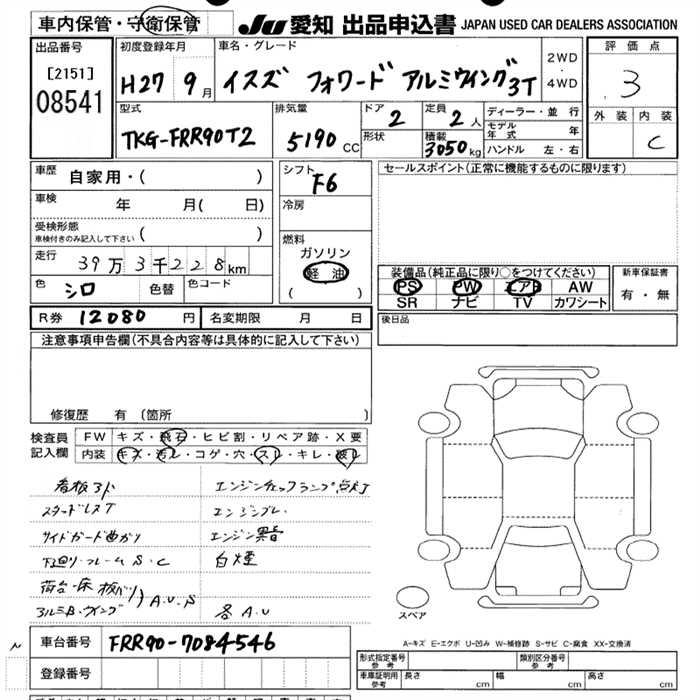 車内保管・守衛保管
JU 愛知 出品申込書 JAPAN USED CAR DEALERS ASSOCIATION
出品番号
[2151]
08541
初度登録年月
H27 9月
車名・グレード
イスズ フォワード アルミウイング3T
2WD
・
4WD
評価点
3
外装 内装
C
型式
TKG-FRR90T2
排気量
5190 CC
ドア 2
形状
定員 2 人
積載 3050 kg
ディーラー・並行
モデル年式 年
ハンドル 左・右
車歴 自家用・( )
車検 年 月( 日)
受検形態
車検付きのみ記入して下さい ( )
走行 39万3千228km
色 シロ 色替 色コード
シフト
F6
冷房
燃料
ガソリン
軽油
( )
セールスポイント(正常に機能するものに限ります)
装備品(純正品に限り○をつけてください)
PS PW エアB AW
SR ナビ TV カワシート
新車保証書
有・無
R券 12080 円 名変期限 月 日
後日品
注意事項申告欄(不具合内容等は具体的に記入して下さい)
修復歴 有(箇所 )
検査員
記入欄
FW キズ・飛石・ヒビ割・リペア跡・X要
内装 キズ・汚レ・コゲ・穴・スレ・キレ・破レ
看板ヌド エンジンチェックランプ点灯
スタッドレスT エンジンブレ
サイドガード曲がり エンジン異音
下廻り・フレーム S・C 白煙
荷台・床板バリ
アルミB・ウイング A・U・S
各A・U
スペア
A-キズ E-エクボ U-凹み W-補修跡 S-サビ C-腐食 XX-交換済
車台番号 FRR90-7084546
登録番号
形式指定番号 参考 類別区分番号 参考
車庫証明用 参考 長さ cm 幅 cm 高さ cm